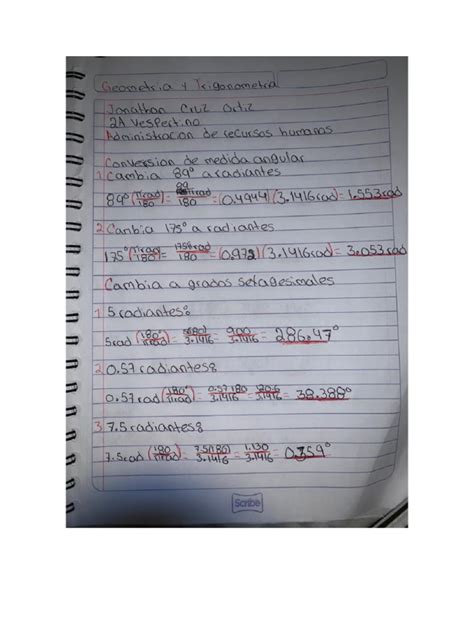 Geometria y Trigonometria
Jonathan Cruz Ortiz
2A Vespertino
Administracion de recursos humanos
Conversion de medida angular
1 Cambia 89° a radiantes
89° (πrad/180) = 89πrad/180 = (0.4944)(3.1416rad) = 1.553rad
2 Cambia 175° a radiantes
175° (πrad/180) = 175πrad/180 = (0.972)(3.1416rad) = 3.053rad
Cambia a grados sexagesimales
1 5 radiantes:
5rad (180°/πrad) = 5(180)/3.1416 = 900/3.1416 = 286.47°
2 0.57 radiantes:
0.57rad (180°/πrad) = 0.57.180/3.1416 = 120.6/3.1416 = 38.388°
3 7.5 radiantes:
7.5rad (180/πrad) = 7.5(180)/3.1416 = 1.130/3.1416 = 0.359°
Scribe